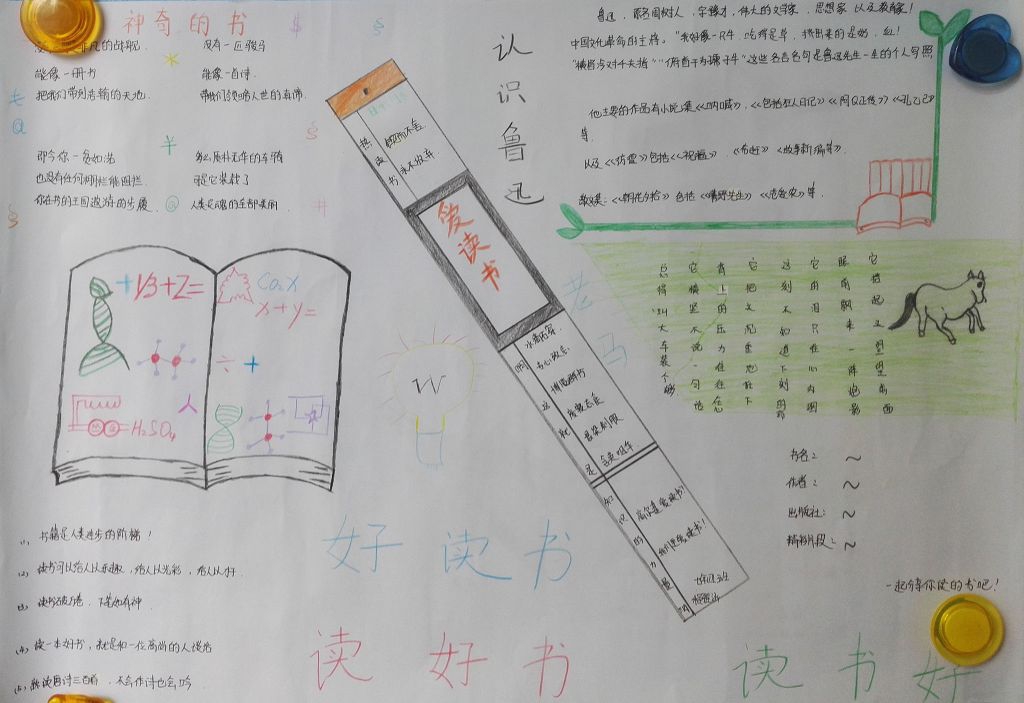 神奇的书
没有一匹骏马
能像一册书
能像一首诗
把我们带到
带我们领略人世的真谛
即令你一贫如洗
那么质朴无华的车骑
也没有任何栅栏能阻拦
可是它装载了
你在书的王国遨游的步履
人类灵魂的全部美丽
认识鲁迅
鲁迅,原名周树人,字豫才,伟大的文学家,思想家以及教育家!
中国文化革命的主将。"我好像一只牛,吃得是草,挤出来的是奶、血!
"横眉冷对千夫指""俯首甘为孺子牛"这些名言名句是鲁迅先生一生的个人写照
他主要的作品有小说集《呐喊》,《包括狂人日记》《阿Q正传》《孔乙己》
等.
以及《彷徨》包括《祝福》.《伤逝》《故事新编等》.
散文集:《朝花夕拾》包括《藤野先生》《范爱农》等.
爱读书
永不放弃
老马
总得叫大车装个够
它横竖不说一句话
背上的压力往肉里扣
它把头沉重地垂下
这刻不知道下刻的命
它有泪只在心里咽
眼前飘来一阵鞭影
它抬起头望望前面
V3+Z=
x+y=
H₂SO₄
W
书名:~
作者:~
出版社:~
精彩片段:~
一起分享你读的书吧!
(1)、书籍是人类进步的阶梯!
(2)、读书可以给人以乐趣,给人以光彩,给人以才干.
(3)、读书破万卷,下笔如有神.
(4)、读一本好书,就是和一位高尚的人谈话
(5)、熟读唐诗三百首,不会作诗也会吟
好读书
读好书
读书好
知识的力量